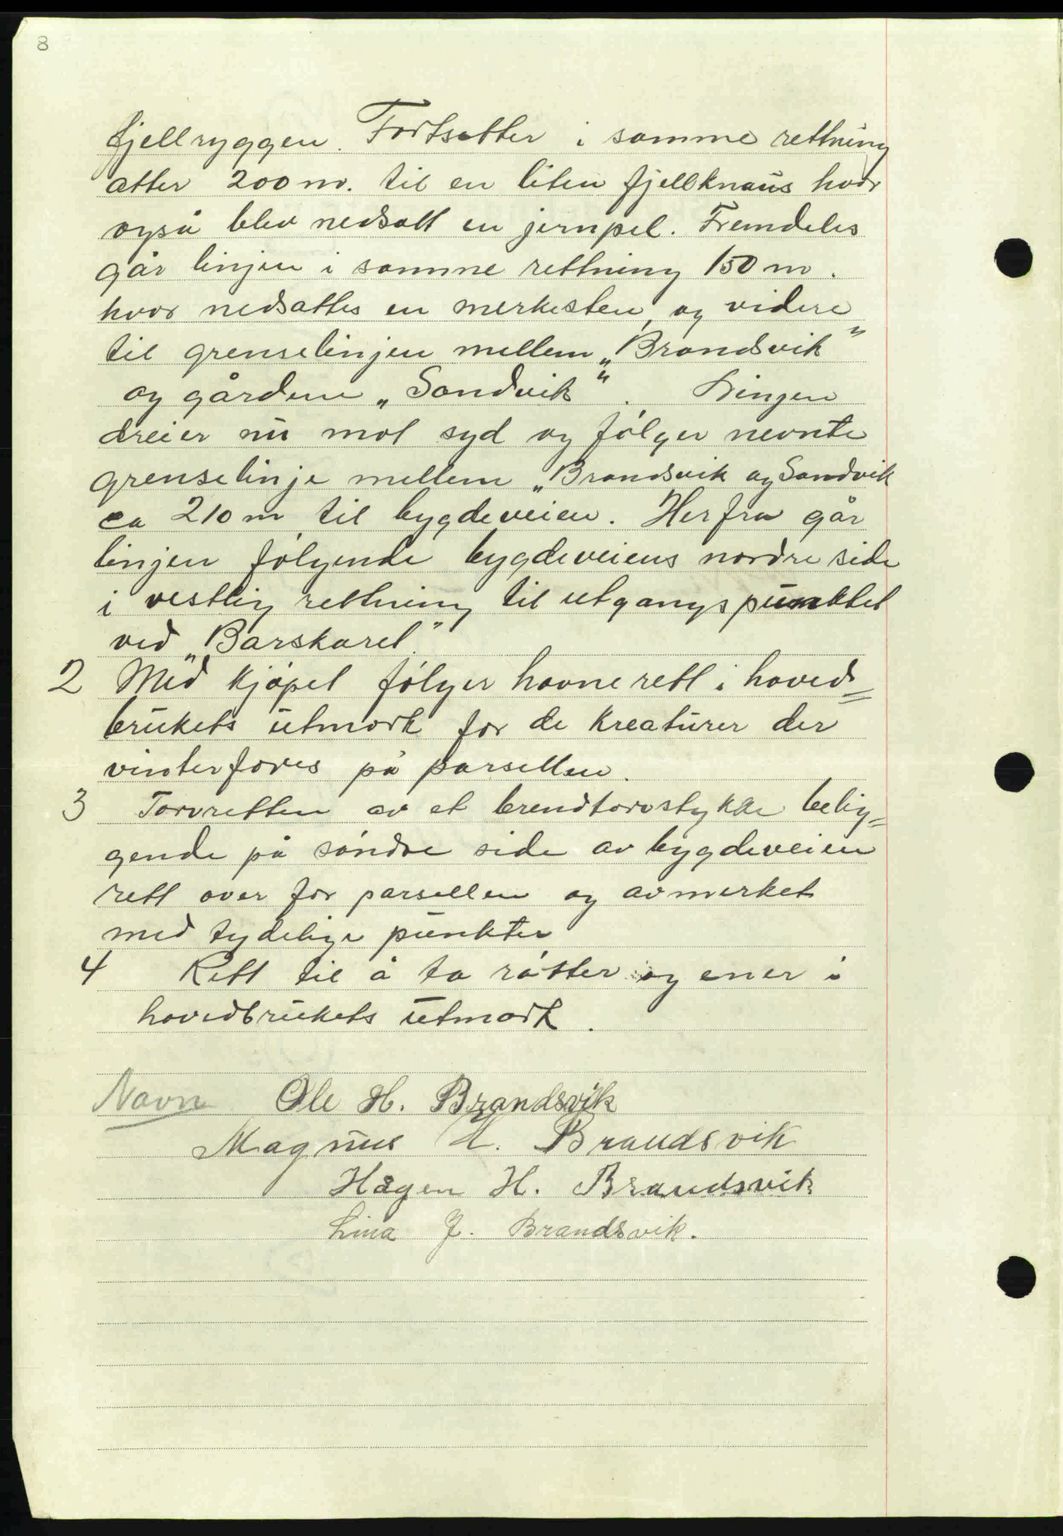 8
fjellryggen. Fortsetter i samme rettning
atter 200 m. til en liten fjellknaus hvor
også blev nedsatt en jernpel. Fremdeles
går linjen i samme rettning 150 m.
hvor nedsattes en merkesten, og videre
til grenselinjen mellem „Brandsvik"
og gården „Sandvik". Linjen
dreier nu mot syd og følger nevnte
grenselinje mellem „Brandsvik og Sandvik
ca 210 m til bygdeveien. Herfra går
linjen følgende bygdeveiens nordre side
i vestlig rettning til utgangspunktet
ved „Barskaret."
2 Med kjøpet følger havnerett i hoved=
brukets utmark for de kreaturer der
vinterfores på parsellen.
3 Torvretten av et brendtorvstykke belig=
gende på søndre side av bygdeveien
rett over for parsellen og avmerket
med tydelige punkter
4 Rett til å ta røtter og ener i
hovedbrukets utmark.
Navn Ole H. Brandsvik
Magnus H. Brandsvik
Hagen H. Brandsvik
Lina J. Brandsvik.